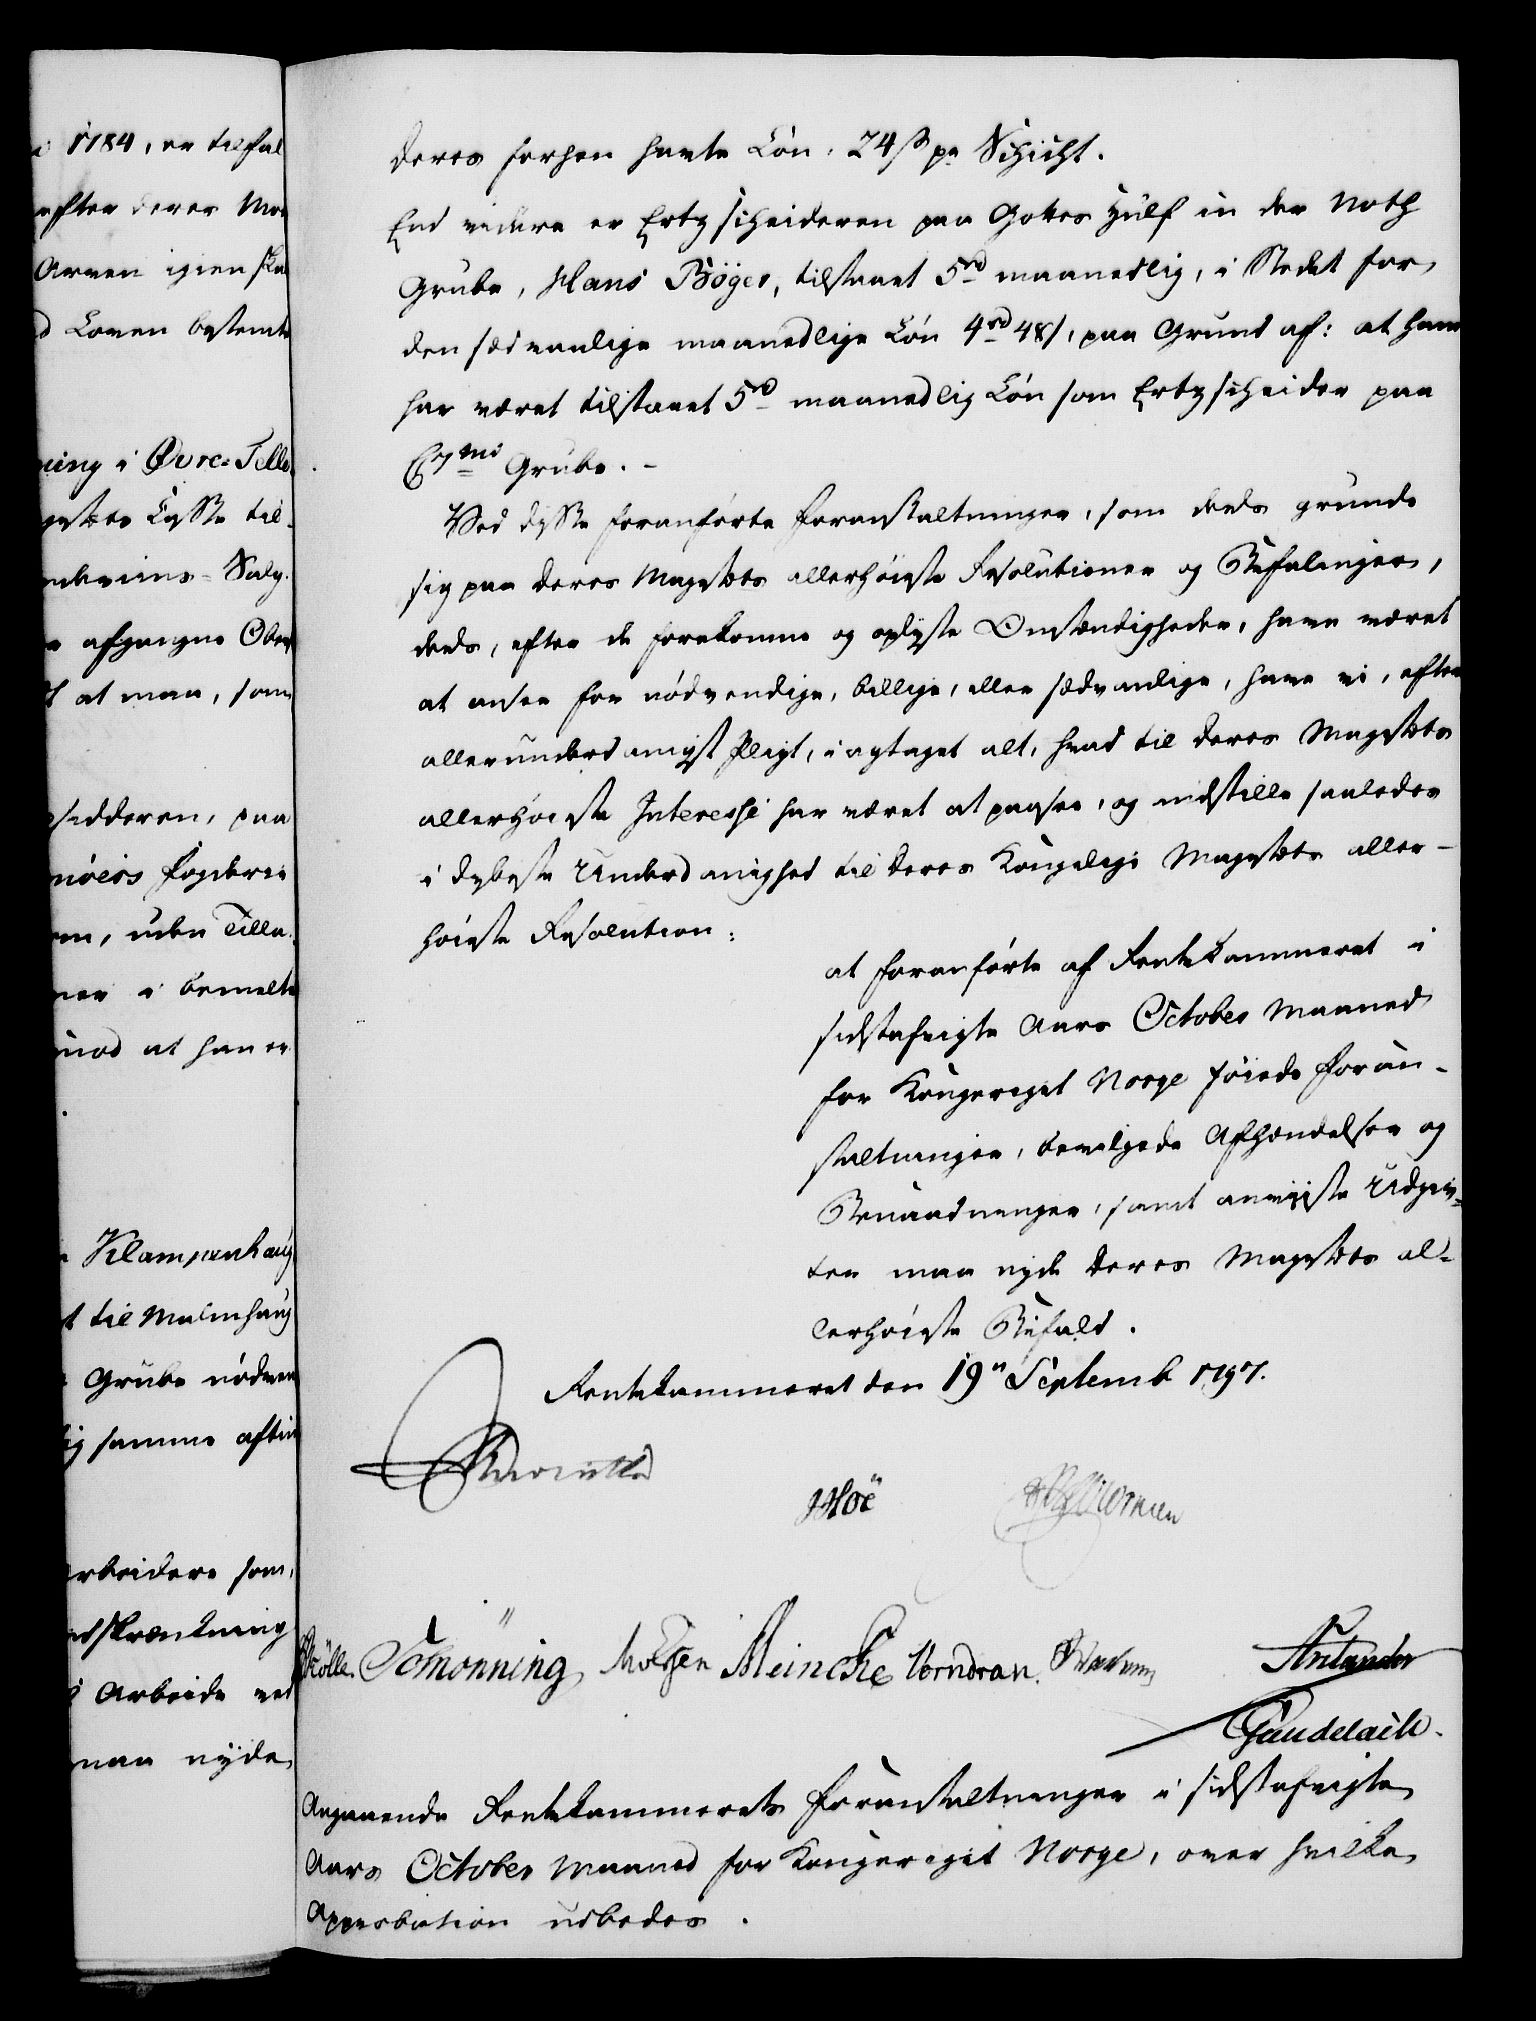 i 1784, er tilfal
efter deres Mo
Arven igien ska
d Loven bestemte
ning i Øvre=Telle
gestets Lysse til-
Salg.
afgangne Ober
at man, som
sidderen, paa
Fogderie
uden Tilla
ner i bemelte
mod at han er
Klampenhaug
til Malmhaug
Grube nødven
ig samme aftin
Arbeidere som
ndskrænkning
Arbeide ved
maa nyde
deres forhen havte Løn, 24 ß pr Schicht.
End videre er Ertzscheideren paa Gottes Hülf in der Noth
Grube, Hans Böger, tilstaaet 5 rd maanedlig, i Stedet for
den sædvanlige maanedlige Løn 4 rd 48 ß, paa Grund af: at han
har været tilstaaet 5 rd maanedlig Løn som Ertzscheider paa
Grube. -
Ved disse foranførte Foranstaltninger, som deels grunde
sig paa Deres Majestets allerhøieste Resolutioner og Befalinger,
deels, efter de forekomne og oplyste Omstændigheder, have været
at ansee for nødvendige, billige, eller sædvanlige, have vi, efter
allerunderdanigst Pligt, iagttaget alt, hvad til Deres Majestets
allerhøieste Interesse har været at paasee, og indstille saaledes
i dybeste Underdanighed til Deres Kongelige Majestets aller-
høieste Resolution:
at foranførte af Rentekammeret i
sidstafvigte Aars October Maaned
for Kongeriget Norge føiede Foran-
staltninger, bevilgede Afhændelser og
Benaadninger, samt anviiste Udgiv-
ter maa nyde Deres Majestets al-
lerhøieste Bifald.
Rentekammeret den 19n Septemb 1797.
Reventlow
Höe
Schönning Meincke Vorndran
Gaudelach.
Angaaende Rentekammerets Foranstaltninger i sidstafvigte
Aars October Maaned for Kongeriget Norge, over hvilke
Approbation udbedes.